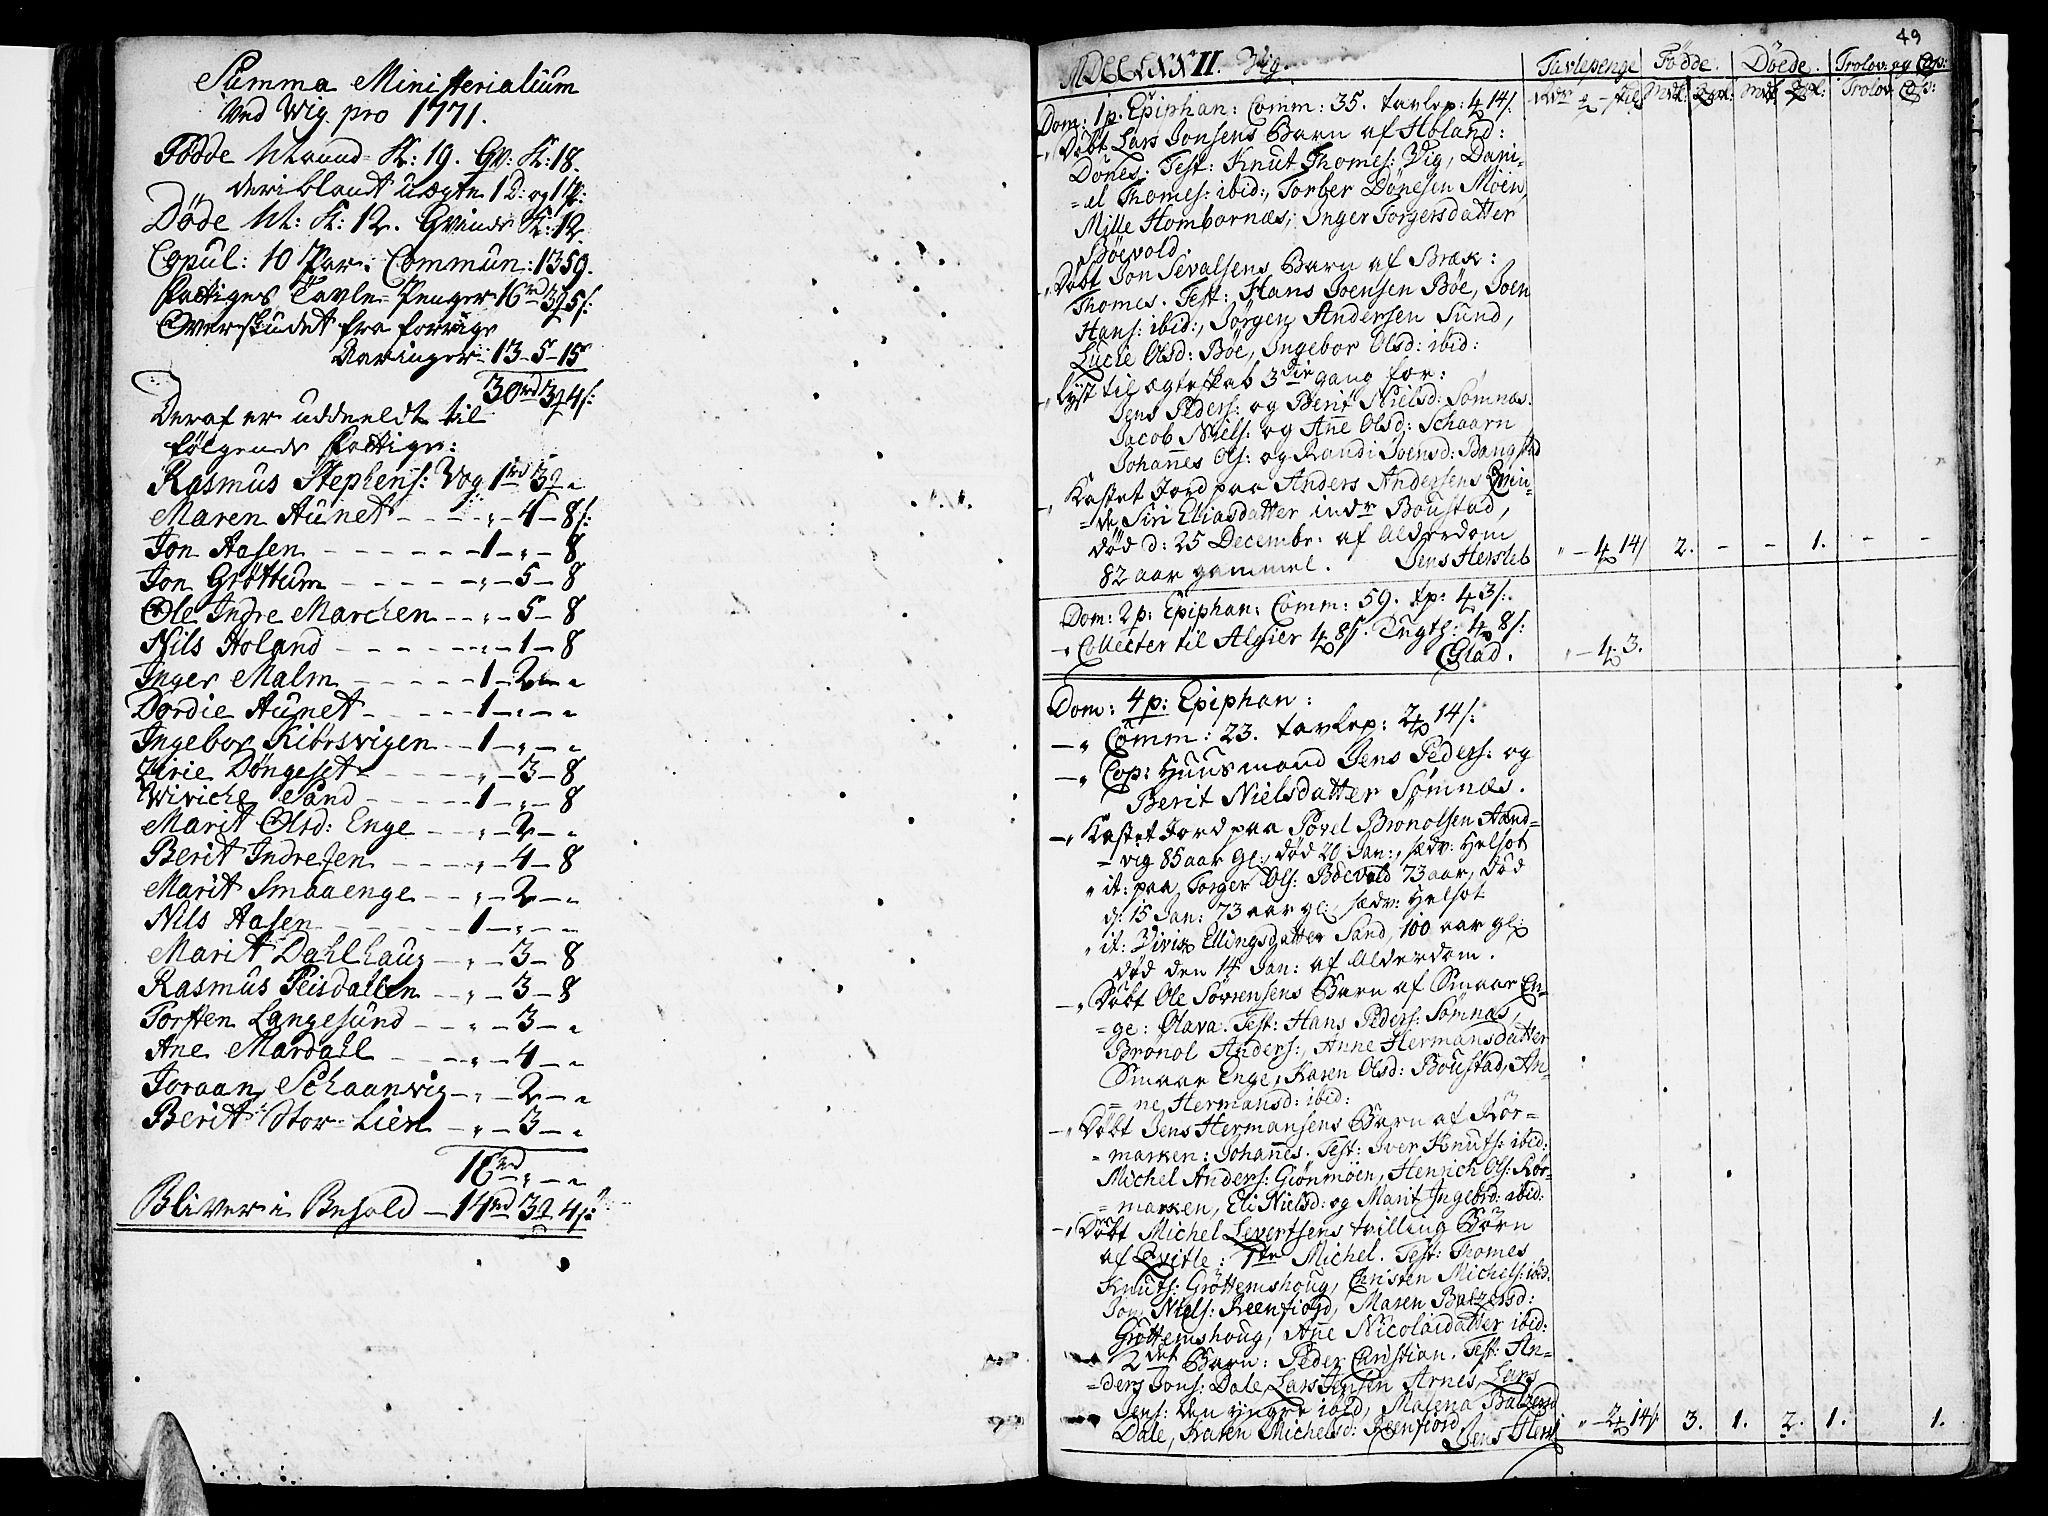 Summa Ministerialium
Ved Wig pro 1771.
Fødde Mand-K: 19. Qv: K: 18.
deriblandt uægte 1 D: og 1 P:
Døde M: K: 12. Qvinde K: 12.
Copul: 10 Par. Commun: 1359.
Fattiges Tavle-Penger 16rd 3q 5s:
Overskudet fra forrige
Aaringer 13-5-15
30rd 3q 4s:
Deraf er uddeeldt til
følgende Fattige:
Rasmus Stephens: Vog 1rd 3q "
Maren Aunet - - - " - 4 - 8s:
Jon Aasen - - - 1 - " - 8
Jon Grøttum - - - " - 5 - 8
Ole Indre Marchen - - " - 5 - 8
Nils Holand - - - " - 1 - 8
Inger Malm - - - 1 - 2 - "
Dordie Aunet - - - 1 - " - "
Ingebor Kibrsvigen - - 1 - " - "
Zirie Døngeset - - " - 3 - 8
Wiviche Sand - - - 1 - " - 8
Marit Olsd: Enge - - " - 2 - "
Berit Indresen - - - " - 4 - 8
Marit Smaaenge - - " - 2 - "
Nils Aasen - - - 1 - " - "
Marit Dahlhaug - " - 3 - 8
Rasmus Peisdallen - " - 3 - 8
Torsten Langesund - - " - 3 - "
Ane Mardall - - - " - 4 - "
Joraan Schaanvig - " - 2 - "
Berit Stor-Lien - " - 3 - "
16rd " - "
Bliver i Behold - 14rd 3q 4s:
49
MDCCLXXII. Vig.
Tavlepenge Fødde. Døede. Trolov: og Cop:
Mdk: Qvk: Mdk Qvk: Trolov: Cop:
Dom: 1 p. Epiphan: Comm: 35. tavlep: 4 14s:
-" Døbt Lars Jonsens Barn af Holand:
Dønes. Test: Knut Thomes: Vig, Dani-
=el Thomes: ibid:, Torber Dønesen Moen,
Mille Hombornæs, Inger Torgersdatter
Bøevold.
-" Døbt Jon Sevalsens Barn af Bræk:
Thomes. Test: Hans Joensen Bøe, Joen
Hans: ibid:, Jørgen Andersen Sund,
Lucie Olsd: Bøe, Ingebor Olsd: ibid:
-" Lyst til Ægteskab 3die gang for:
Jens Peders: og Berit Nielsd: Sømnæs.
Jacob Niels: og Ane Olsd: Schaarn
Johanes Ols: og Randi Joensd: Bangstad
-" Kastet Jord paa Anders Andersens Qvin-
=de Siri Eliasdatter indr Boustad,
død d: 25 Decembr: af Alderdom
82 aar gammel. Jens Hersleb " - 4 14s 2. - - 1. - -
Dom: 2 p: Epiphan: Comm: 59. tp: 4 3s:
-" Collecter til Algier 4 8s. Tugth: 4 8s:
Glad. " - 4 3.
Dom: 4 p: Epiphan:
-" Comm: 23. tavlep: 2 14s:
-" Cop: Huusmand Jens Peders: og
Berit Nielsdatter Sømnæs.
-" Kastet Jord paa Povel Bronolsen Aand=
=vig 85 aar gl:, død 20 Jan:, sædv: Helsot
" it: paa Torger Ols: Bøevold 73 aar, død
d: 15 Jan: 73 aar gl:, sædv: Helsot
" it: Ellingsdatter Sand, 100 aar gl:
død den 14 Jan: af Alderdom.
-" Døbt Ole Sørensens Barn af Smaar En-
=ge: Olava. Test: Hans Peders: Sømnæs,
Brønol Anders:, Anne Hermansdatter
Smaar Enge, Karen Olsd: Boustad, An-
=ne Hermansd: ibid:
-" Døbt Jens Hermansens Barn af Rør=
=marken: Johanes. Test: Iver Knuts: ibid:
Michel Anders: Giønmöen, Henrich Ols: Rør-
=marken, Eli Nielsd: og Marit Ingebrd: ibid:
-" Døbt Michel Levertsens tvilling Børn
af Qvitle: 1te Michel. Test: Thomes
Knuts: Grøttemshoug, Christen Michels: ibid.
Jon Niels: Reenfiord, Maren Balzersd:
Grøttemshoug, Ane Nicolaidatter ibid:
2det Barn: Peder Christian. Test: An-
=ders Jons: Dale, Lars Jensen Arnes, Lars
Jens: den yngre ibid, Malena Balzersd
Dale, Karen Michelsd: Reenfiord Jens Hersl " - 2 14s 3. 1. 2. 1. 1.